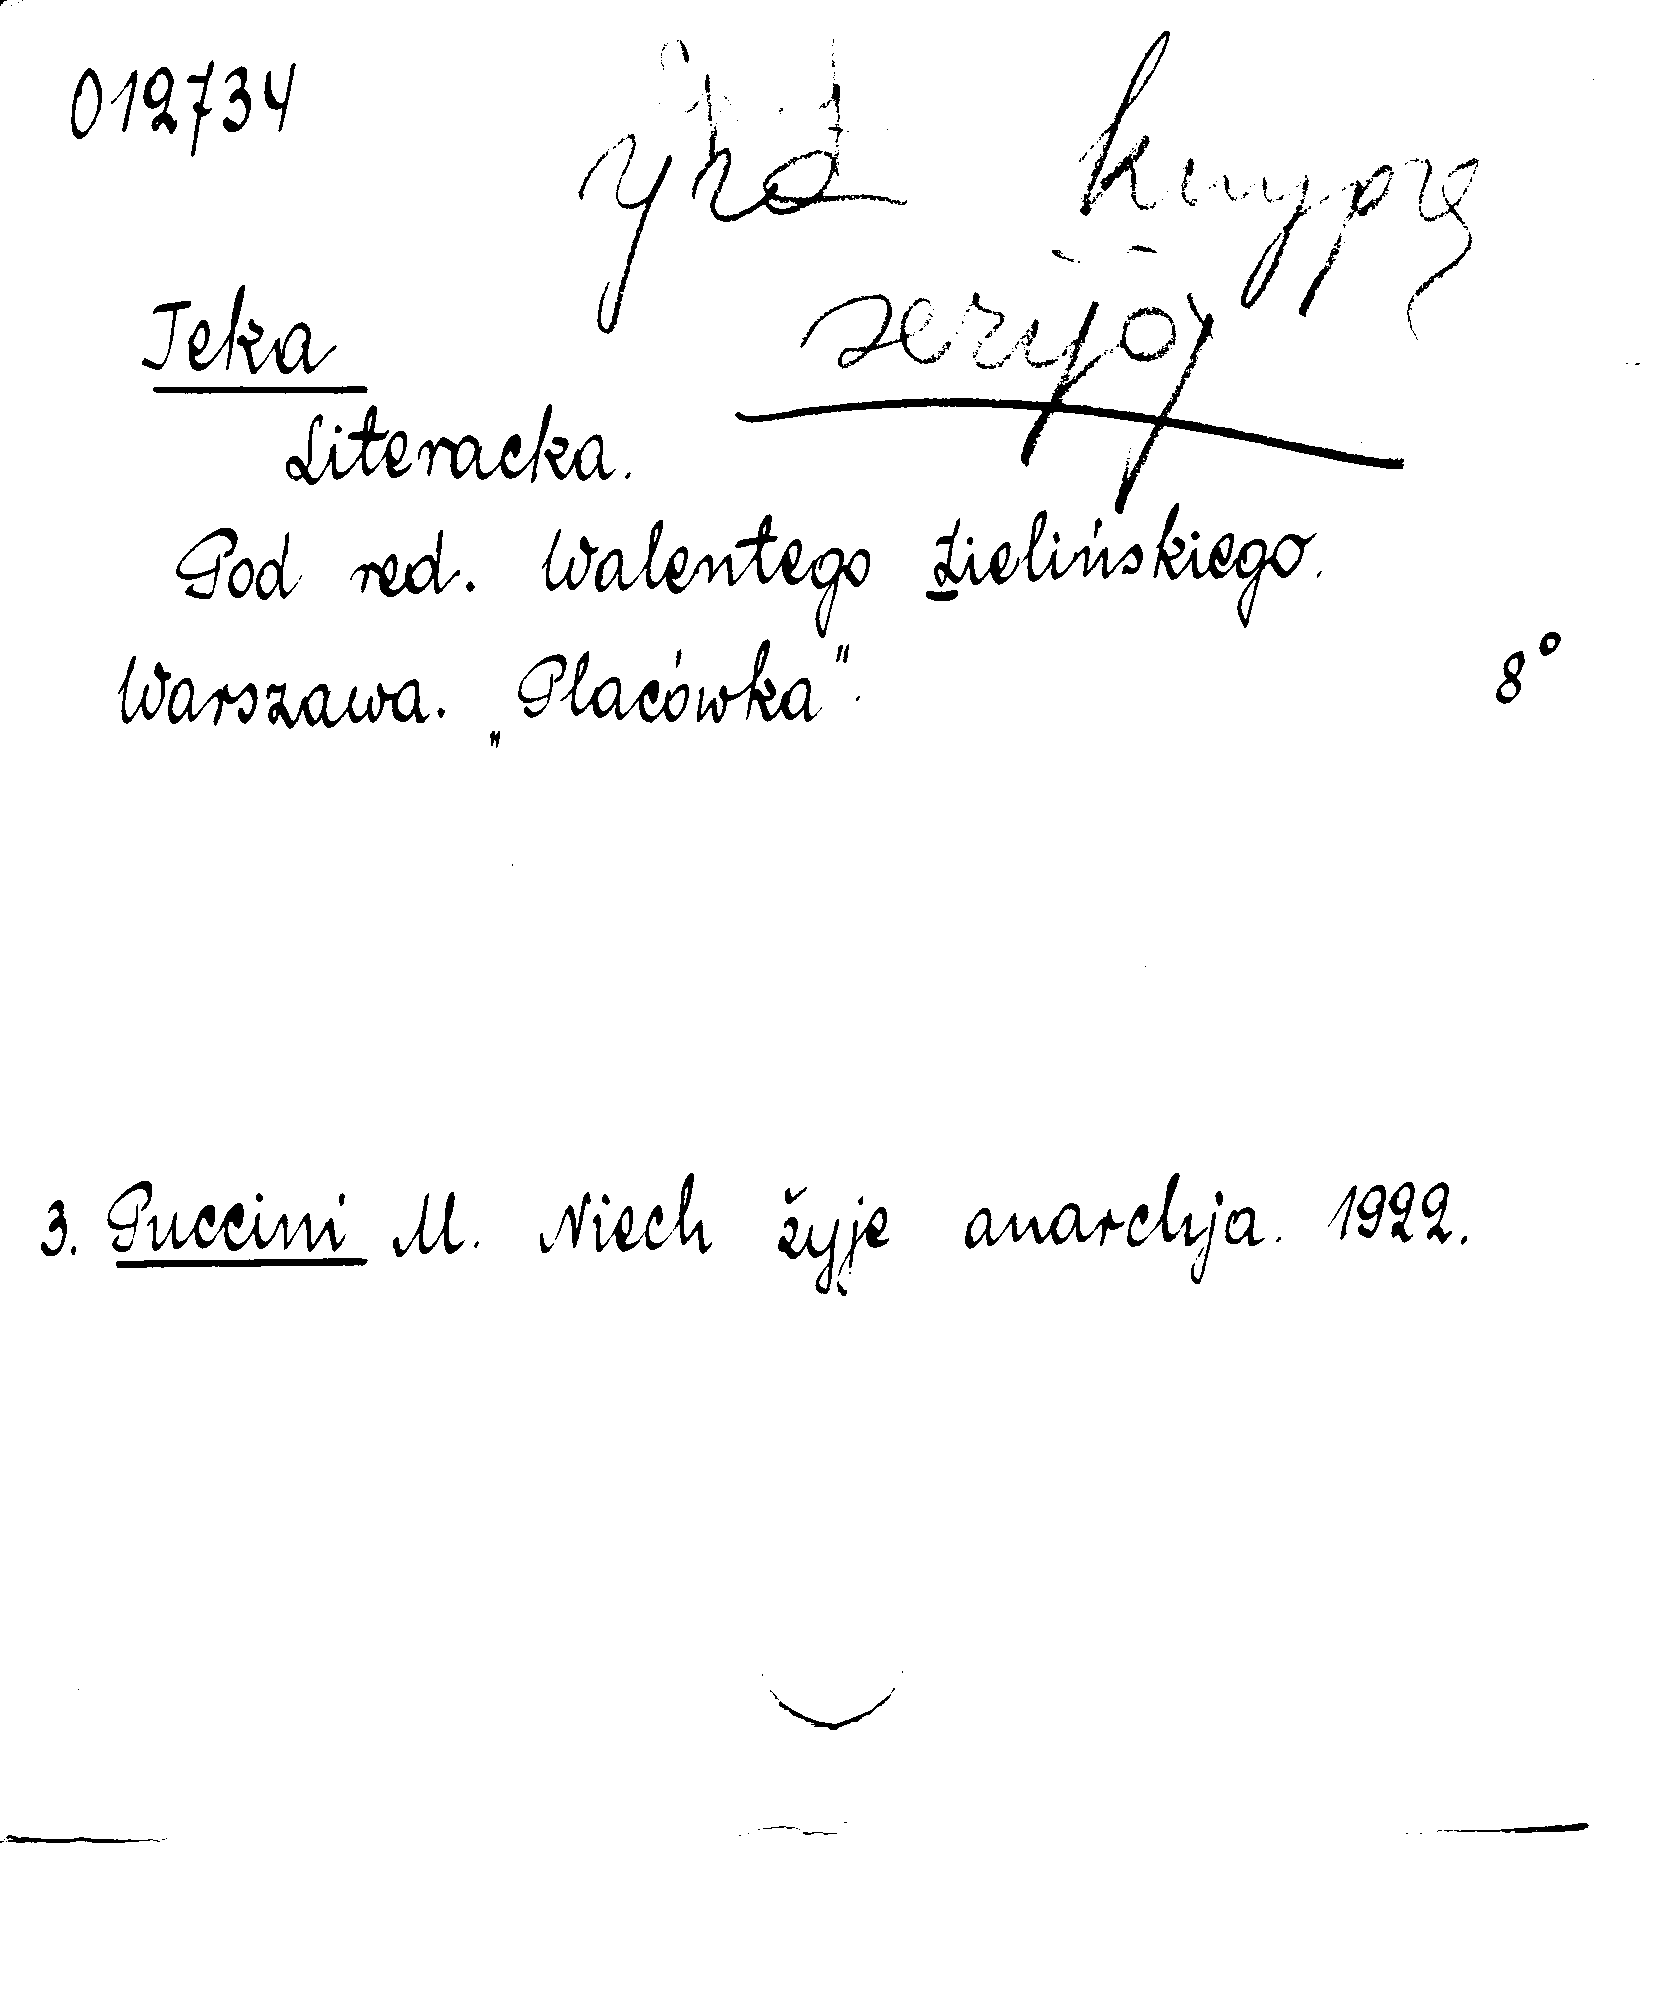 012734
Teka
Literacka.
Pod red. Walentego Zielińskiego.
Warszawa. „Placówka". 8°
3. Puccini M. Niech żyje anarchja. 1922.